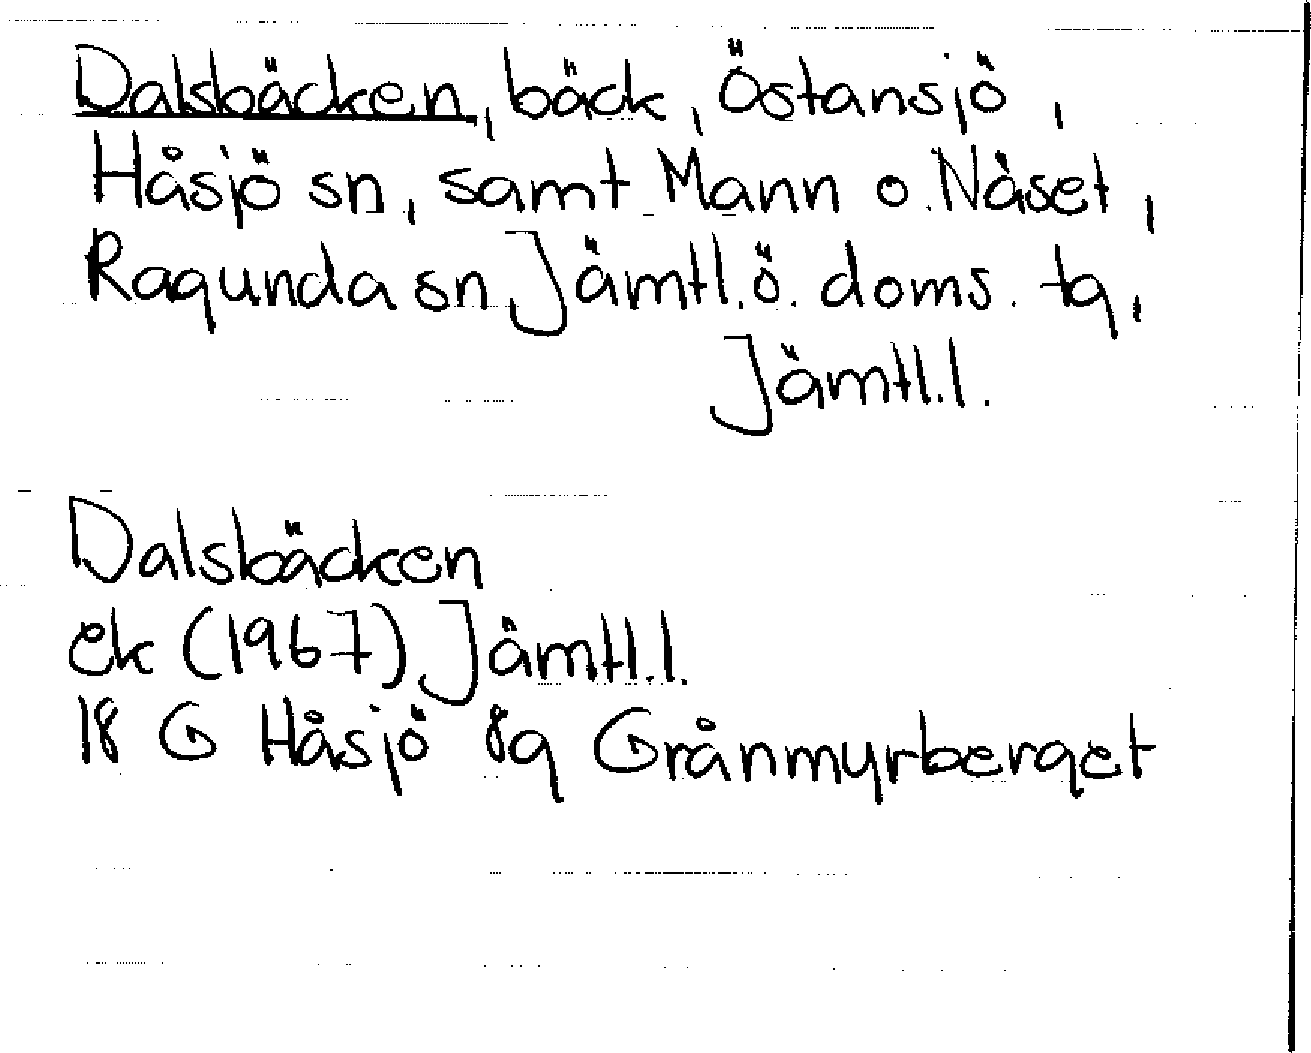 Dalsbäcken, bäck, Östansjö,
Håsjö sn, samt Mann o. Näset,
Ragunda sn, Jämtl. ö. doms. tg,
Jämtl. l.
Dalsbäcken
ek (1967) Jämtl. l.
18 G Håsjö 8g Grånmyrberget